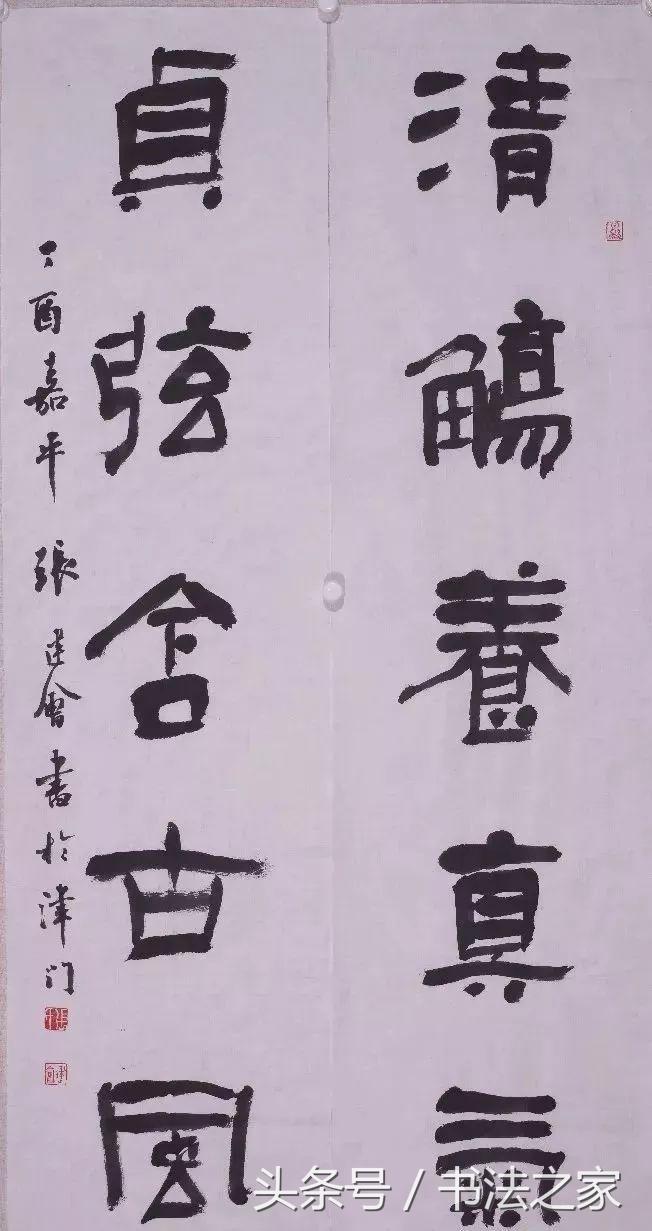 清觴養真氣
貞弦含古風
丁酉嘉平 張建會書於津门
头条号 / 书法之家